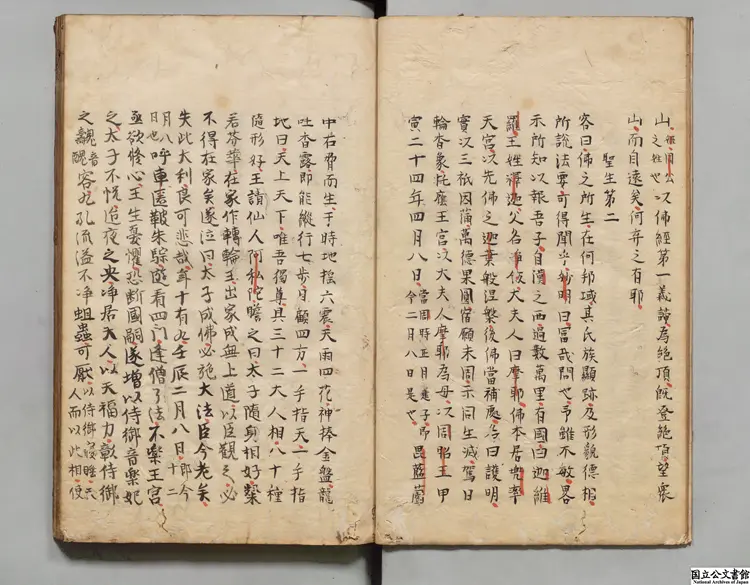 山、以佛經第一義諦為絶頂、既登絶頂、望衆
山、而自遠矣、何弃之有耶、
聖生第二
客曰、佛之所生、在何邦域、其氏族顯跡、及形貌德相
所說法要、可得聞乎、妙明曰、富哉問也、予雖不敏、畧
示所知、以報吾子、自濟之西、過數萬里、有國曰迦維
羅、王姓釋迦、父名淨飯、大夫人曰摩耶、佛本居兜率
天宮、次先佛之迦葉般涅槃後、佛當補處、名曰護明、
實以三祇因滿萬德果圓、宿願未周、示同生滅、駕日
輪香象、托麼王宮、以大夫人摩耶為母、以周昭王甲
寅二十四年四月八日、當周時正月建子、即今二月八日是也、毘藍園
中右脅而生、于時地搖六震、天雨四花、神捧金盤、龍
吐香露、即能縱行七步、目顧四方、一手指天、一手指
地曰、天上天下、唯吾獨尊、具三十二大人相八十種
隨形好、王請仙人阿私陀瞻之曰、太子隨身相好粲
若芬華、在家作轉輪王、出家成無上道、以臣觀之、必
不得在家矣、遂泣曰、太子成佛必弘大法、臣今老矣、
失此大利、良可悲哉、年十有九、壬辰二月八日、即今十二
月八日也、呼車匿鞁朱騌、隨看四門、逢僧了法、不樂王宮
亟欲修心、王生憂懼、恐斷國嗣、遂增以侍御音樂妃
之、太子不悅、迨夜之央、淨居天人、以天福力、彰侍御
之醜容、九孔流溢、不淨蛆蟲可厭、以侍御寢睡、天人而以此相、使
国立公文書館
National Archives of Japan